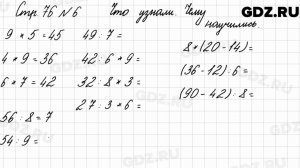 Стр. 76 № 6 Что узнали. Чему
научились
9 * 5 = 45
4 * 9 = 36
6 * 7 = 42
56 : 8 = 7
54 : 9 =
49 : 7 =
42 : 6 * 9 =
32 : 8 * 3 =
27 : 3 * 6 =
8 * (20 - 14) =
(36 - 12) : 6 =
(90 - 42) : 8 =
GDZ.RU